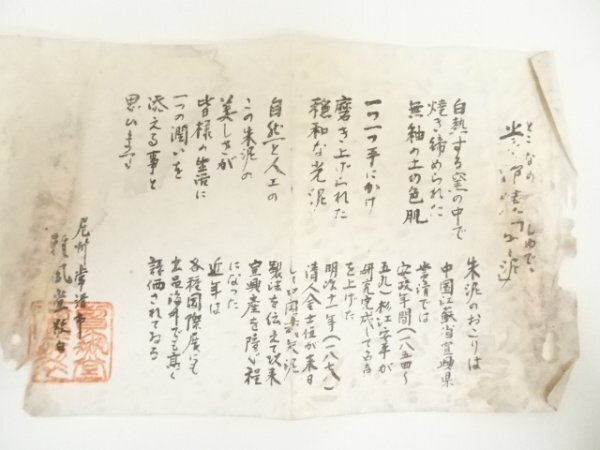 とこなめ しゅでい
常滑焼 朱泥
白熱する窯の中で
焼き締められた
無釉の土の色肌
一つ一つ手にかけ
磨き上げられた
穏和な光泥
自然と人工の
この朱泥の
美しさが
皆様の生活に
一つの潤いを
添える事と
思います
朱泥のおこりは
中国江蘇省宜興県
常滑では
安政年間（一八五四〜
五九）杉江安平が
研究完成している
を上げた
明治十一年（一八七八）
清人金士恒が来日
して
製法を伝えて以来
宜興産を障ぐ程
になった
近年は
各種国際展にも
出品海外でも高く
評価されてゐる
尾州常滑市
雅風堂敬白